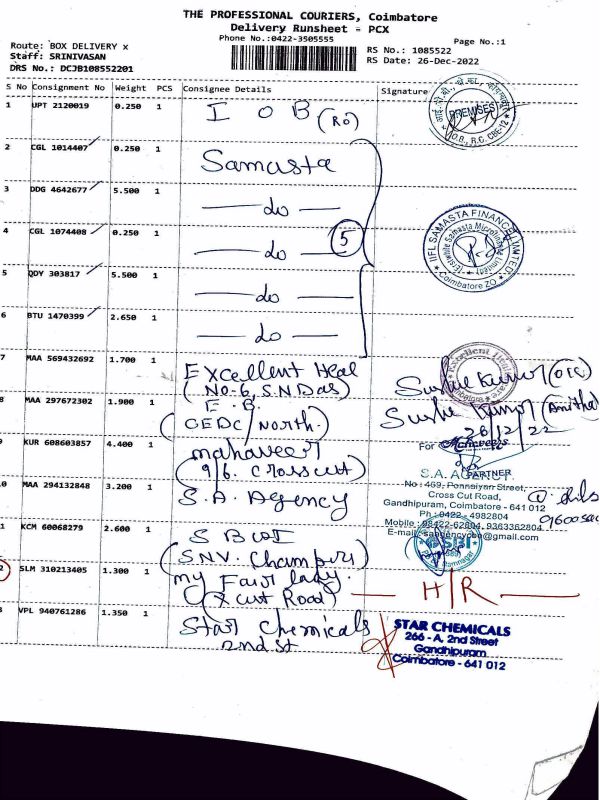 THE PROFESSIONAL COURIERS, Coimbatore
Delivery Runsheet - PCX
Phone No.:0422-3505555
Page No.:1
Route: BOX DELIVERY x
Staff: SRINIVASAN
DRS No.: DCJB108552201
RS No.: 1085522
RS Date: 26-Dec-2022
S No Consignment No Weight PCS Consignee Details Signature
1 UPT 2120019 0.250 1 I O B (RO)
PREMISES
2 CGL 1014407 0.250 1 Samasta
3 DDG 4642677 5.500 1 — do —
4 CGL 1074408 0.250 1 — do — 5
IIFL SAMASTA FINANCE LIMITED
Coimbatore ZO
5 QDY 303817 5.500 1 — do —
6 BTU 1470399 2.650 1 — do —
7 MAA 569432692 1.700 1 Excellent Heal
(No-6, S.N Das)
8 MAA 297672302 1.900 1 E.B
(GEDC/North)
26/12/22
9 KUR 608603857 4.400 1 mahaveer
(9/6. Crosscut)
For
PARTNER
0 MAA 294132848 3.200 1 S.A. Agency
S.A. AGENCY
No : 469, Ponnaiyan Street,
Cross Cut Road,
Gandhipuram, Coimbatore - 641 012
Ph : 0422 - 4982804
Mobile : 98422-62804, 9363362804
1 KCM 60068279 2.600 1 S B I
SBI
2 SLM 310213405 1.300 1 my Fair lady.
(X cut Road) — H/R —
3 VPL 940761286 1.350 1 Star Chemicals
2nd st
STAR CHEMICALS
266 - A, 2nd Street
Gandhipuram
Coimbatore - 641 012